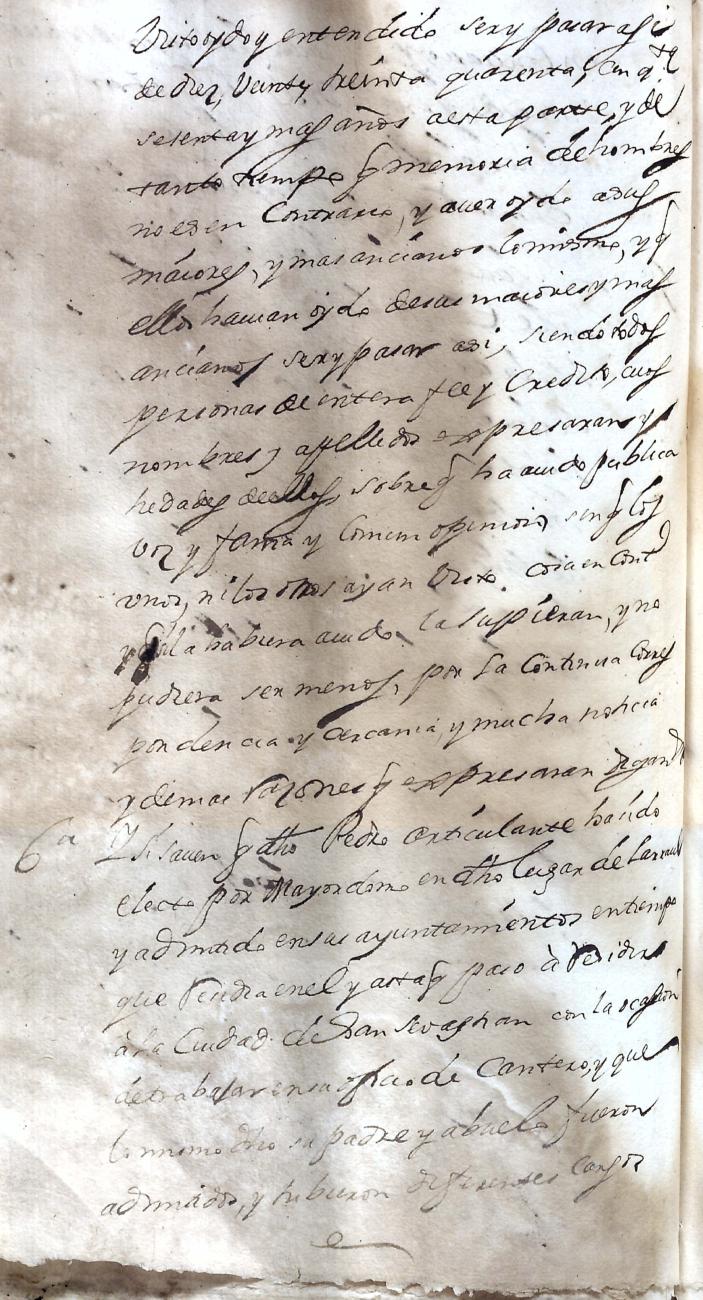 Visto oydo y entendido ser y pasar asi
de diez, Veinte, treinta quarenta, cinq.ta
sesenta y mas años a esta parte, y de
tanto tiempo q memoria de hombres
no es en Contrario, y auer oydo a sus
maiores, y mas ancianos lo mismo, y q
ellos hauian oydo de sus maiores y mas
ancianos ser y pasar asi, siendo todos
personas de entera fee y Credito, cuios
nombres y apellidos expresaran y
hedades de ellos, sobre q ha auido publica
voz y fama y Comun opinion sin q los
unos, ni los otros ayan Visto cosa en Cont.o
y si la hubiera auido la supieran, y no
pudiera ser menos, por la Continua Corres
pondencia y cercania, y mucha noticia
y demas razones q expresaran digan
6a Yt si sauen q dho Pedro articulante ha sido
electo por Mayordomo en dho Lugar de Larraul
y admitido en sus ayuntamientos en tiempo
que Residia en el y asta q paso à Residir
à la Ciudad de San Sevastian con la ocasion
de trabajar en su oficio de Cantero, y que
lo mismo dho su padre y abuelo fueron
admitidos, y tubieron diferentes Cargos